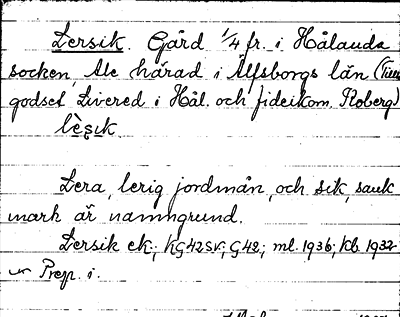 Lersik. Gård 1/4 fr. i Hålanda
socken, Ale härad i Älfsborgs län (Till
godset Livered i Hål. och fideikom. Koberg)
lèsik
Lera, lerig jordmån, och sik, sank
mark är namngrund.
Lersik ek.; KG42SV; G42; ml. 1936; kb 1932
Prep. i.